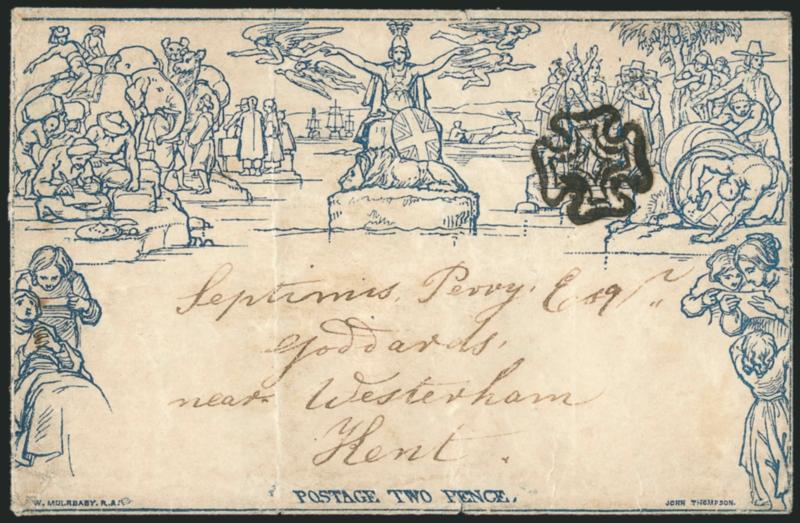 Septimus, Perry, Esqr,,
Goddards,
near Westerham
Kent.
W. MULREADY. R.A.
POSTAGE TWO PENCE.
JOHN THOMPSON.